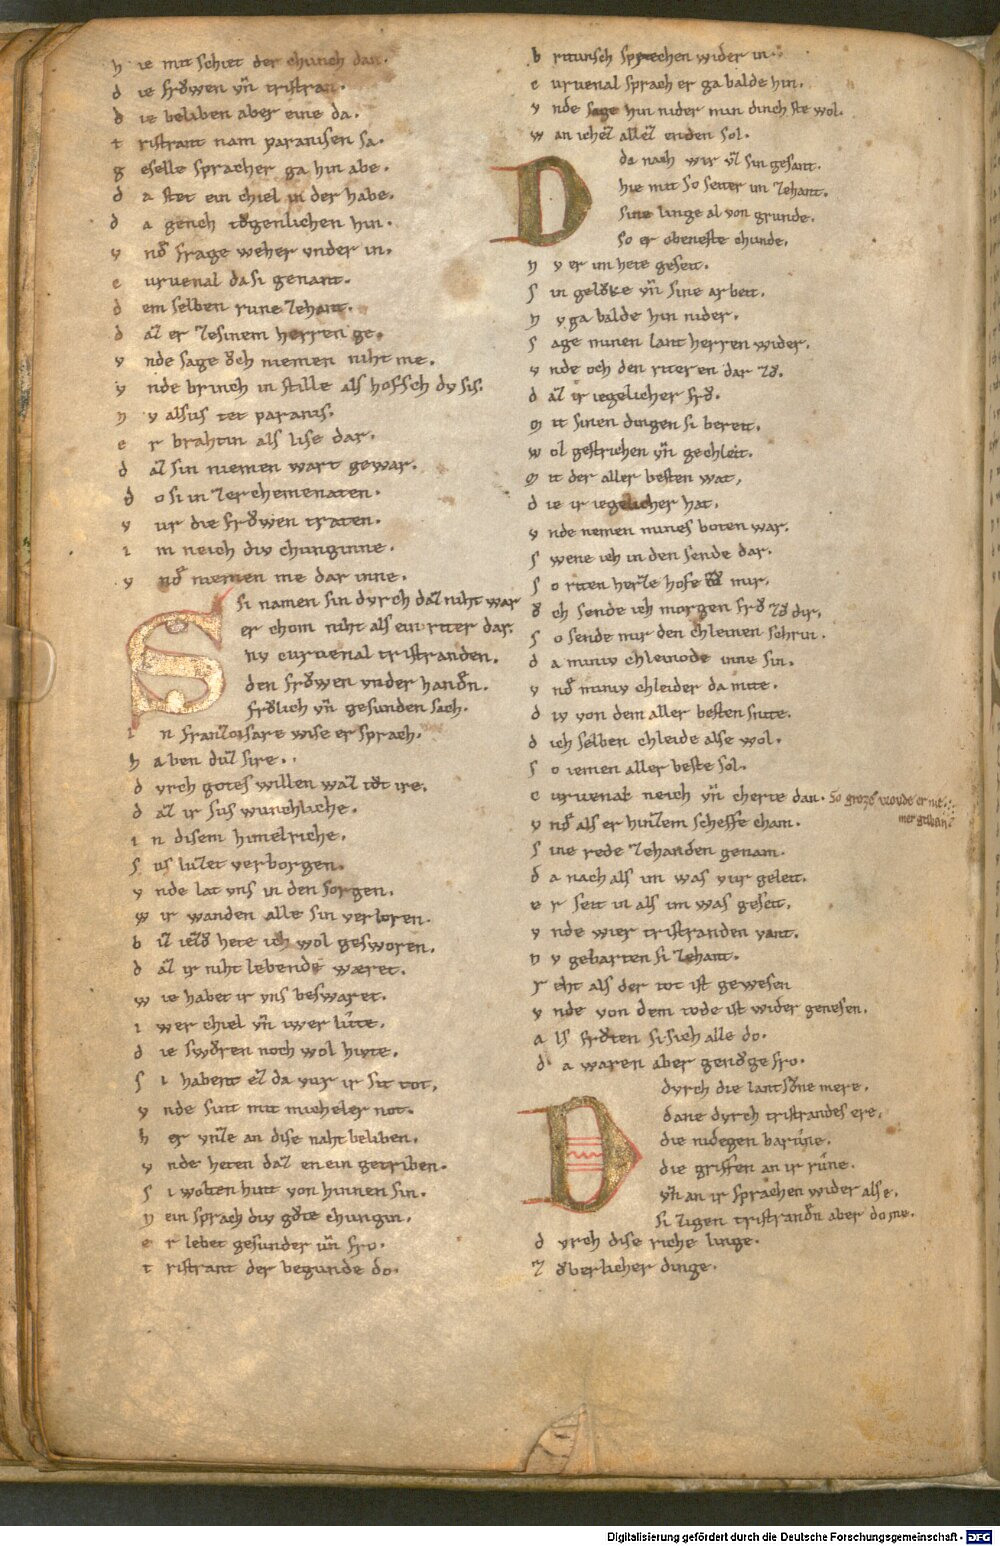 h ie mit schiet der chunch dan.
d ie frǒwen vñ tristran.
d ie beliben aber eine da.
t ristrant nam paranisen sa.
g eselle spracher ga hin abe.
d a stet ein chiel in der habe.
d a gench tǒgenlichen hin.
v nd frage weher vnder in.
c urvenal da si genant.
d em selben rune zehant.
d az er zesinem herren ge.
v nde sage ǒch niemen niht me.
v nde brinch in stille als hoffsch dv sis.
N v alsus tet paranis.
e r brahtin als lise dar.
d az sin niemen wart gewar.
d o si in zer chemenaten.
v ur die frǒwen traten.
i m neich div chunginne.
v nd niemen me dar inne.
Si namen sin dvrch daz niht war
er chom niht als ein riter dar.
nv curvenal tristranden.
den frǒwen vnder handn.
frǒlich vñ gesunden sach.
i n franzoisare wise er sprach.
h a ben duz sire.
d vrch gotes willen waz tǒt ire.
d az ir sus wunchliche.
i n disem himelriche.
s us sizzet verborgen.
v nde lat vns in den sorgen.
w ir wanden alle sin verloren.
b iz iezǒ hete ich wol gesworen.
d az ir niht lebende wæret.
w ie habet ir vns beswaret.
i wer chiel vñ iwer lûte.
d ie swǒren noch wol hivte.
s i habent ez da vur ir sit tot.
v nde sint mit micheler not.
h er vnze an dise naht beliben.
v nde heten daz en ein getriben.
s i wolten hint von hinnen sin.
N ein sprach div gǒte chungin.
e r lebet gesunder vñ fro.
t ristrant der begunde do.
b ritunsch sprechen wider in.
c urvenal sprach er ga balde hin.
v nde sage hin nider min dinch ste wol.
w an ichez allez enden sol.
Da nach wir vz sin gesant.
hie mit so seiter im zehant.
sine linge al von grunde.
so er obeneste chunde.
N v er im hete geseit.
s in gelǒke vñ sine arbeit.
N v ga balde hin nider.
s age minen lant herren wider.
v nde och den riteren dar zǒ.
d az ir iegelicher frǒ.
M it sinen dingen si bereit.
w ol gestrichen vñ gechleit.
M it der aller besten wat,
d ie ir iegelicher hat.
v nde nemen mines boten war.
s wene ich in den sende dar.
s o riten her ze hofe zǒ mir.
ǒ ch sende ich morgen frǒ zǒ dir.
s o sende mir den chleinen schrin.
d a miniv chleinode inne sin.
v nd miniv chleider da mite.
d iv von dem aller besten snite.
d ich selben chleide alse wol.
s o iemen aller beste sol.
c urvenal neich vñ cherte dan. So grozs vrovde er nie
mer gewan
v nd als er hin zem scheffe cham.
s ine rede zehanden genam.
d a nach als im was vur geleit.
e r seit in als im was geseit.
v nde wier tristranden vant.
N v gebarten si zehant.
r eht als der tot ist gewesen
v nde von dem tode ist wider genesen.
a ls frǒten si sich alle do.
d a waren aber genǒge fro.
Dvrch die lantsǒne mere.
dane dvrch tristrandes ere.
die nidegen barûne.
die griffen an ir rûne.
vñ an ir sprachen wider alse.
si zigen tristrandn aber do me.
d vrch dise riche linge.
z ǒberlicher dinge.
Digitalisierung gefördert durch die Deutsche Forschungsgemeinschaft - DFG